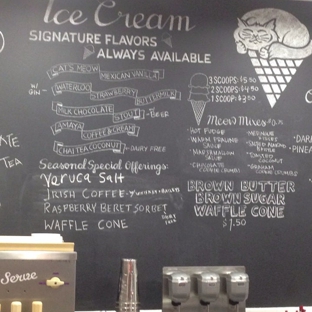 Ice Cream
SIGNATURE FLAVORS
ALWAYS AVAILABLE
CAT'S MEOW MEXICAN VANILLA
W/ GIN- WATERLOO STRAWBERRY BUTTERMILK
MILK CHOCOLATE STOUT -BEER
AMAYA COFFEE & CREAM
CHAI TEA COCONUT -DAIRY FREE
Seasonal Special Offerings:
Veruca Salt
IRISH COFFEE
RASPBERRY BERET SORBET
WAFFLE CONE
3 SCOOPS: $5.50
2 SCOOPS: $4.50
1 SCOOP:
Meow Mixes
- HOT FUDGE
- WARM PRALINE SAUCE
- MARSHMALLOW SAUCE
- CHOCOLATE COOKIE CRUMBS
- TOASTED COCONUT
- GRAHAM COOKIE CRUMBLE
BROWN BUTTER
BROWN SUGAR
WAFFLE CONE
$1.50
TEA
Serve